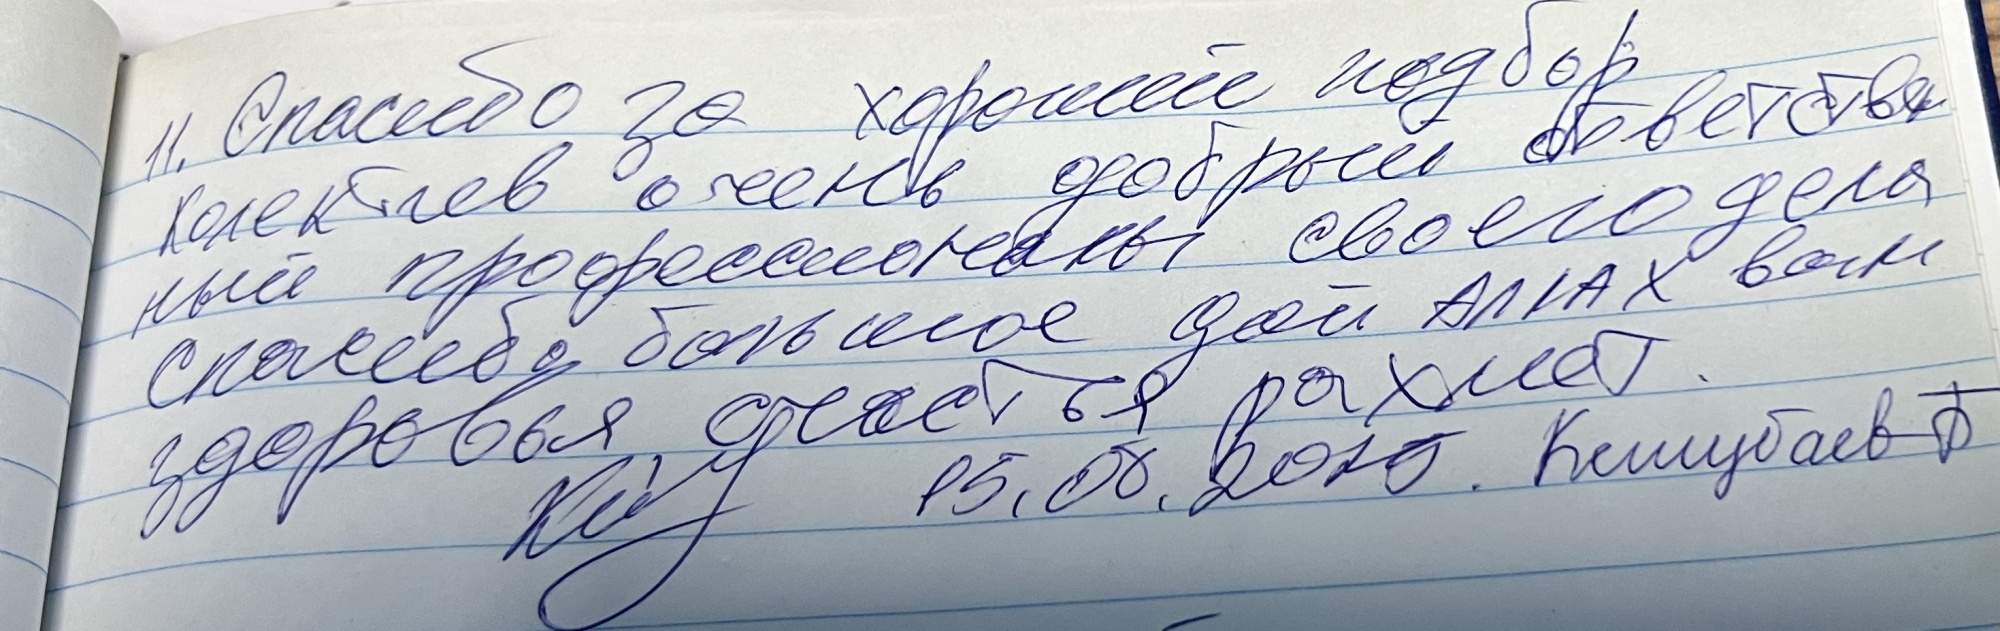 11. Спасибо за хороший подбор
колектиев очень добрый ответствен
ный профессионалы своего дела
спасибо большое дай Аллах вам
здоровья счастья рахмет.
15.08.2025. Кешубаев Б